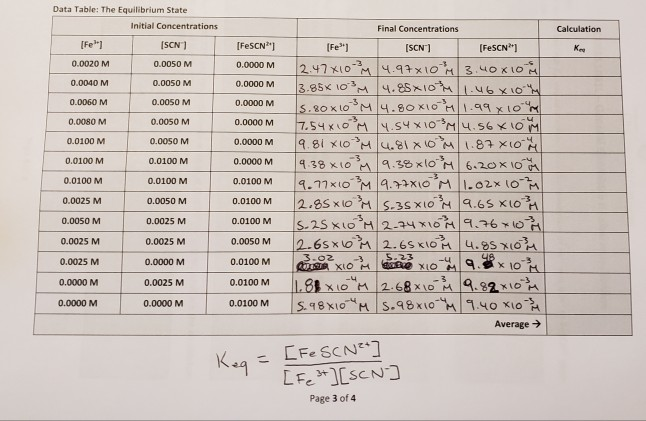 Data Table: The Equilibrium State
Initial Concentrations Final Concentrations Calculation
[Fe³⁺] [SCN⁻] [FeSCN²⁺] [Fe³⁺] [SCN⁻] [FeSCN²⁺] Keq
0.0020 M 0.0050 M 0.0000 M 2.47 x10⁻³ M 4.97x10⁻³ M 3.40 x10⁻⁵ M
0.0040 M 0.0050 M 0.0000 M 3.85x 10⁻³ M 4.85x10⁻³ M 1.46 x10⁻⁴ M
0.0060 M 0.0050 M 0.0000 M 5.80x10⁻³ M 4.80x10⁻³ M 1.99 x10⁻⁴ M
0.0080 M 0.0050 M 0.0000 M 7.54x10⁻³ M 4.54x10⁻³ M 4.56 x 10⁻⁴ M
0.0100 M 0.0050 M 0.0000 M 9.81 x10⁻³ M 4.81 x10⁻³ M 1.87 x10⁻⁴ M
0.0100 M 0.0100 M 0.0000 M 9.38 x10⁻³ M 9.38x10⁻³ M 6.20x 10⁻⁴ M
0.0100 M 0.0100 M 0.0100 M 9.77x10⁻³ M 9.77x10⁻³ M 1.02x 10⁻² M
0.0025 M 0.0050 M 0.0100 M 2.85x10⁻³ M 5.35x10⁻³ M 9.65 x10⁻³ M
0.0050 M 0.0025 M 0.0100 M 5.25 x10⁻³ M 2.74x10⁻³ M 9.76 x10⁻³ M
0.0025 M 0.0025 M 0.0050 M 2.65x10⁻³ M 2.65x10⁻³ M 4.85 x10⁻³ M
0.0025 M 0.0000 M 0.0100 M 3.02 x10⁻³ M 5.23 x10⁻⁴ M 9.48 x 10⁻³ M
0.0000 M 0.0025 M 0.0100 M 1.81 x10⁻⁴ M 2.68x10⁻³ M 9.82 x10⁻³ M
0.0000 M 0.0000 M 0.0100 M 5.98x10⁻⁴ M 5.98x10⁻⁴ M 9.40 x10⁻³ M
Average →
Keq = [FeSCN²⁺]
[Fe³⁺][SCN⁻]
Page 3 of 4